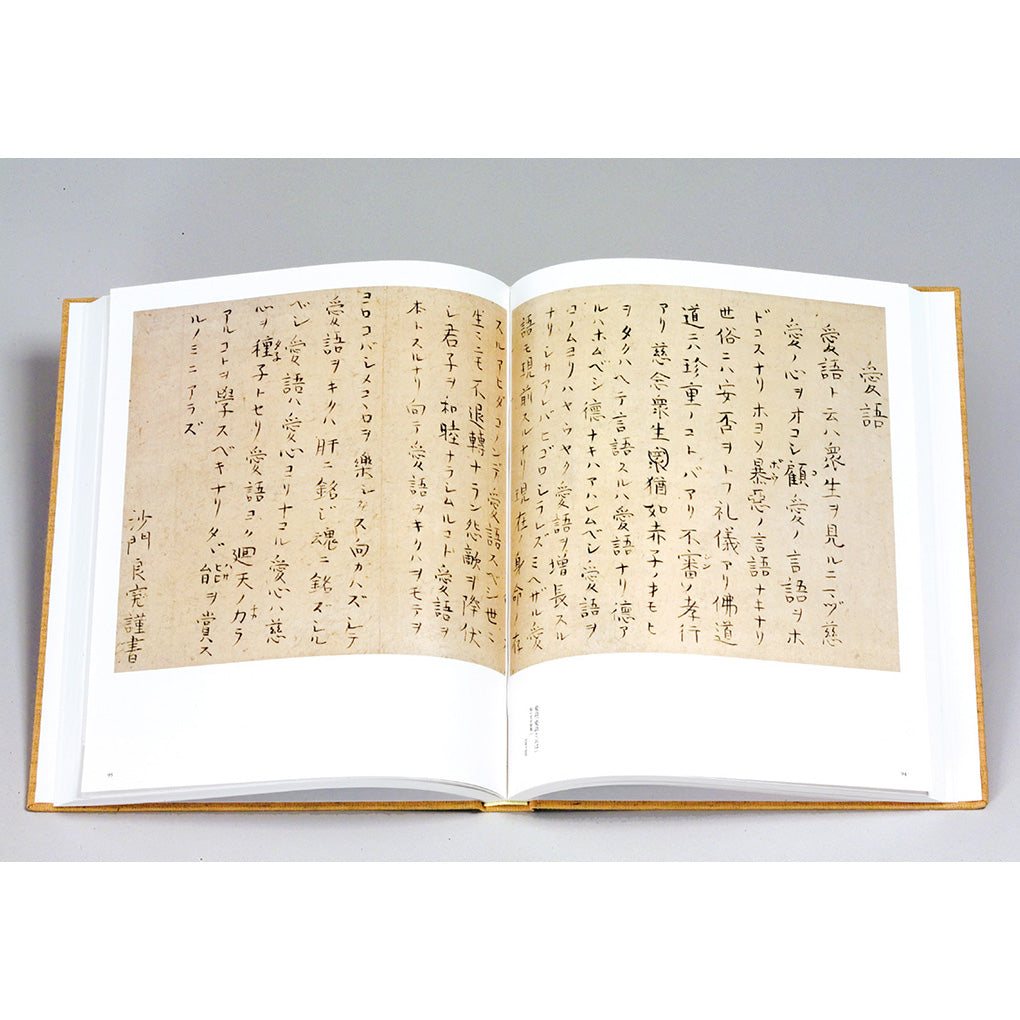 愛語
愛語ト云ハ衆生ヲ見ルニマヅ慈
愛ノ心ヲオコシ顧愛ノ言語ヲホ
ドコスナリホヨソ暴惡ノ言語ナキナリ
世俗ニハ安否ヲトフ礼儀アリ佛道
道ニハ珍重ノコトバアリ不審ノ孝行
アリ慈念衆生猶如赤子ノオモヒ
ヲタクハヘテ言語スルハ愛語ナリ德ア
ルハホムベシ德ナキハアハレムベシ愛語ヲ
コノムヨリハヤウヤク愛語ヲ増長スル
ナリシカアレバヒゴロシラレズミヘザル愛
語モ現前スルナリ現在ノ身命ノ存
スルアヒダコノンデ愛語スベシ世々
生々ニモ不退轉ナラン怨敵ヲ降伏
シ君子ヲ和睦ナラシムルコト愛語ヲ
本トスルナリ向テ愛語ヲキクハヲモテヲ
ヨロコバシメコヽロヲ樂シクス向カハズシテ
愛語ヲキクハ肝ニ銘ジ魂ニ銘ズシル
ベシ愛語ハ愛心ヨリオコル愛心ハ慈
心ヲ種子トセリ愛語ヨク廻天ノカラ
アルコトヲ學スベキナリタヾ能ヲ賞ス
ルノミニアラズ
沙門良寛謹書
94
95